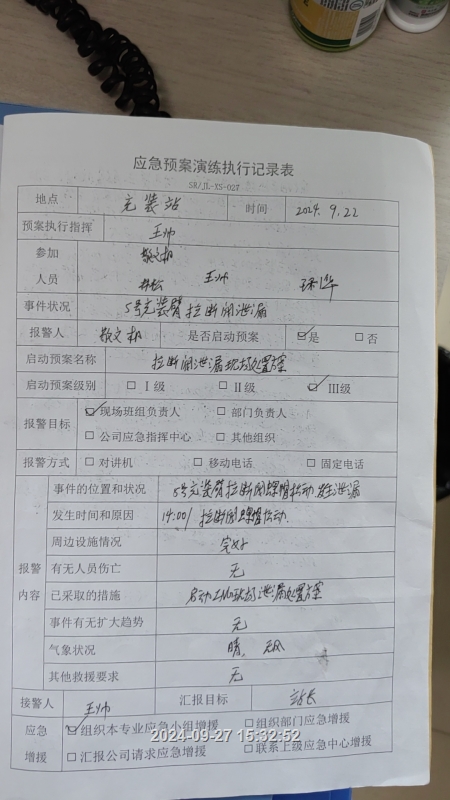 应急预案演练执行记录表
SR/JL-XS-027
地点 充装站 时间 2024.9.22
预案执行指挥 王帅
参加 敬文机
人员 王帅
事件状况 5号充装臂拉断阀泄漏
报警人 敬文机 是否启动预案 ☑是 □否
启动预案名称 拉断阀泄漏现场处置方案
启动预案级别 □Ⅰ级 □Ⅱ级 ☑Ⅲ级
报警目标 ☑现场班组负责人 □部门负责人
□公司应急指挥中心 □其他组织
报警方式 □对讲机 □移动电话 □固定电话
事件的位置和状况 5号充装臂拉断阀螺帽松动发生泄漏
发生时间和原因 14:00/拉断阀螺帽松动
周边设施情况 完好
报警 有无人员伤亡 无
内容 已采取的措施 启动现场泄漏处置方案
事件有无扩大趋势 无
气象状况 晴、无风
其他救援要求 无
接警人 王帅 汇报目标 站长
应急 ☑组织本专业应急小组增援 □组织部门应急增援
2024-09-27 15:32:52
增援 □汇报公司请求应急增援 □联系上级应急中心增援